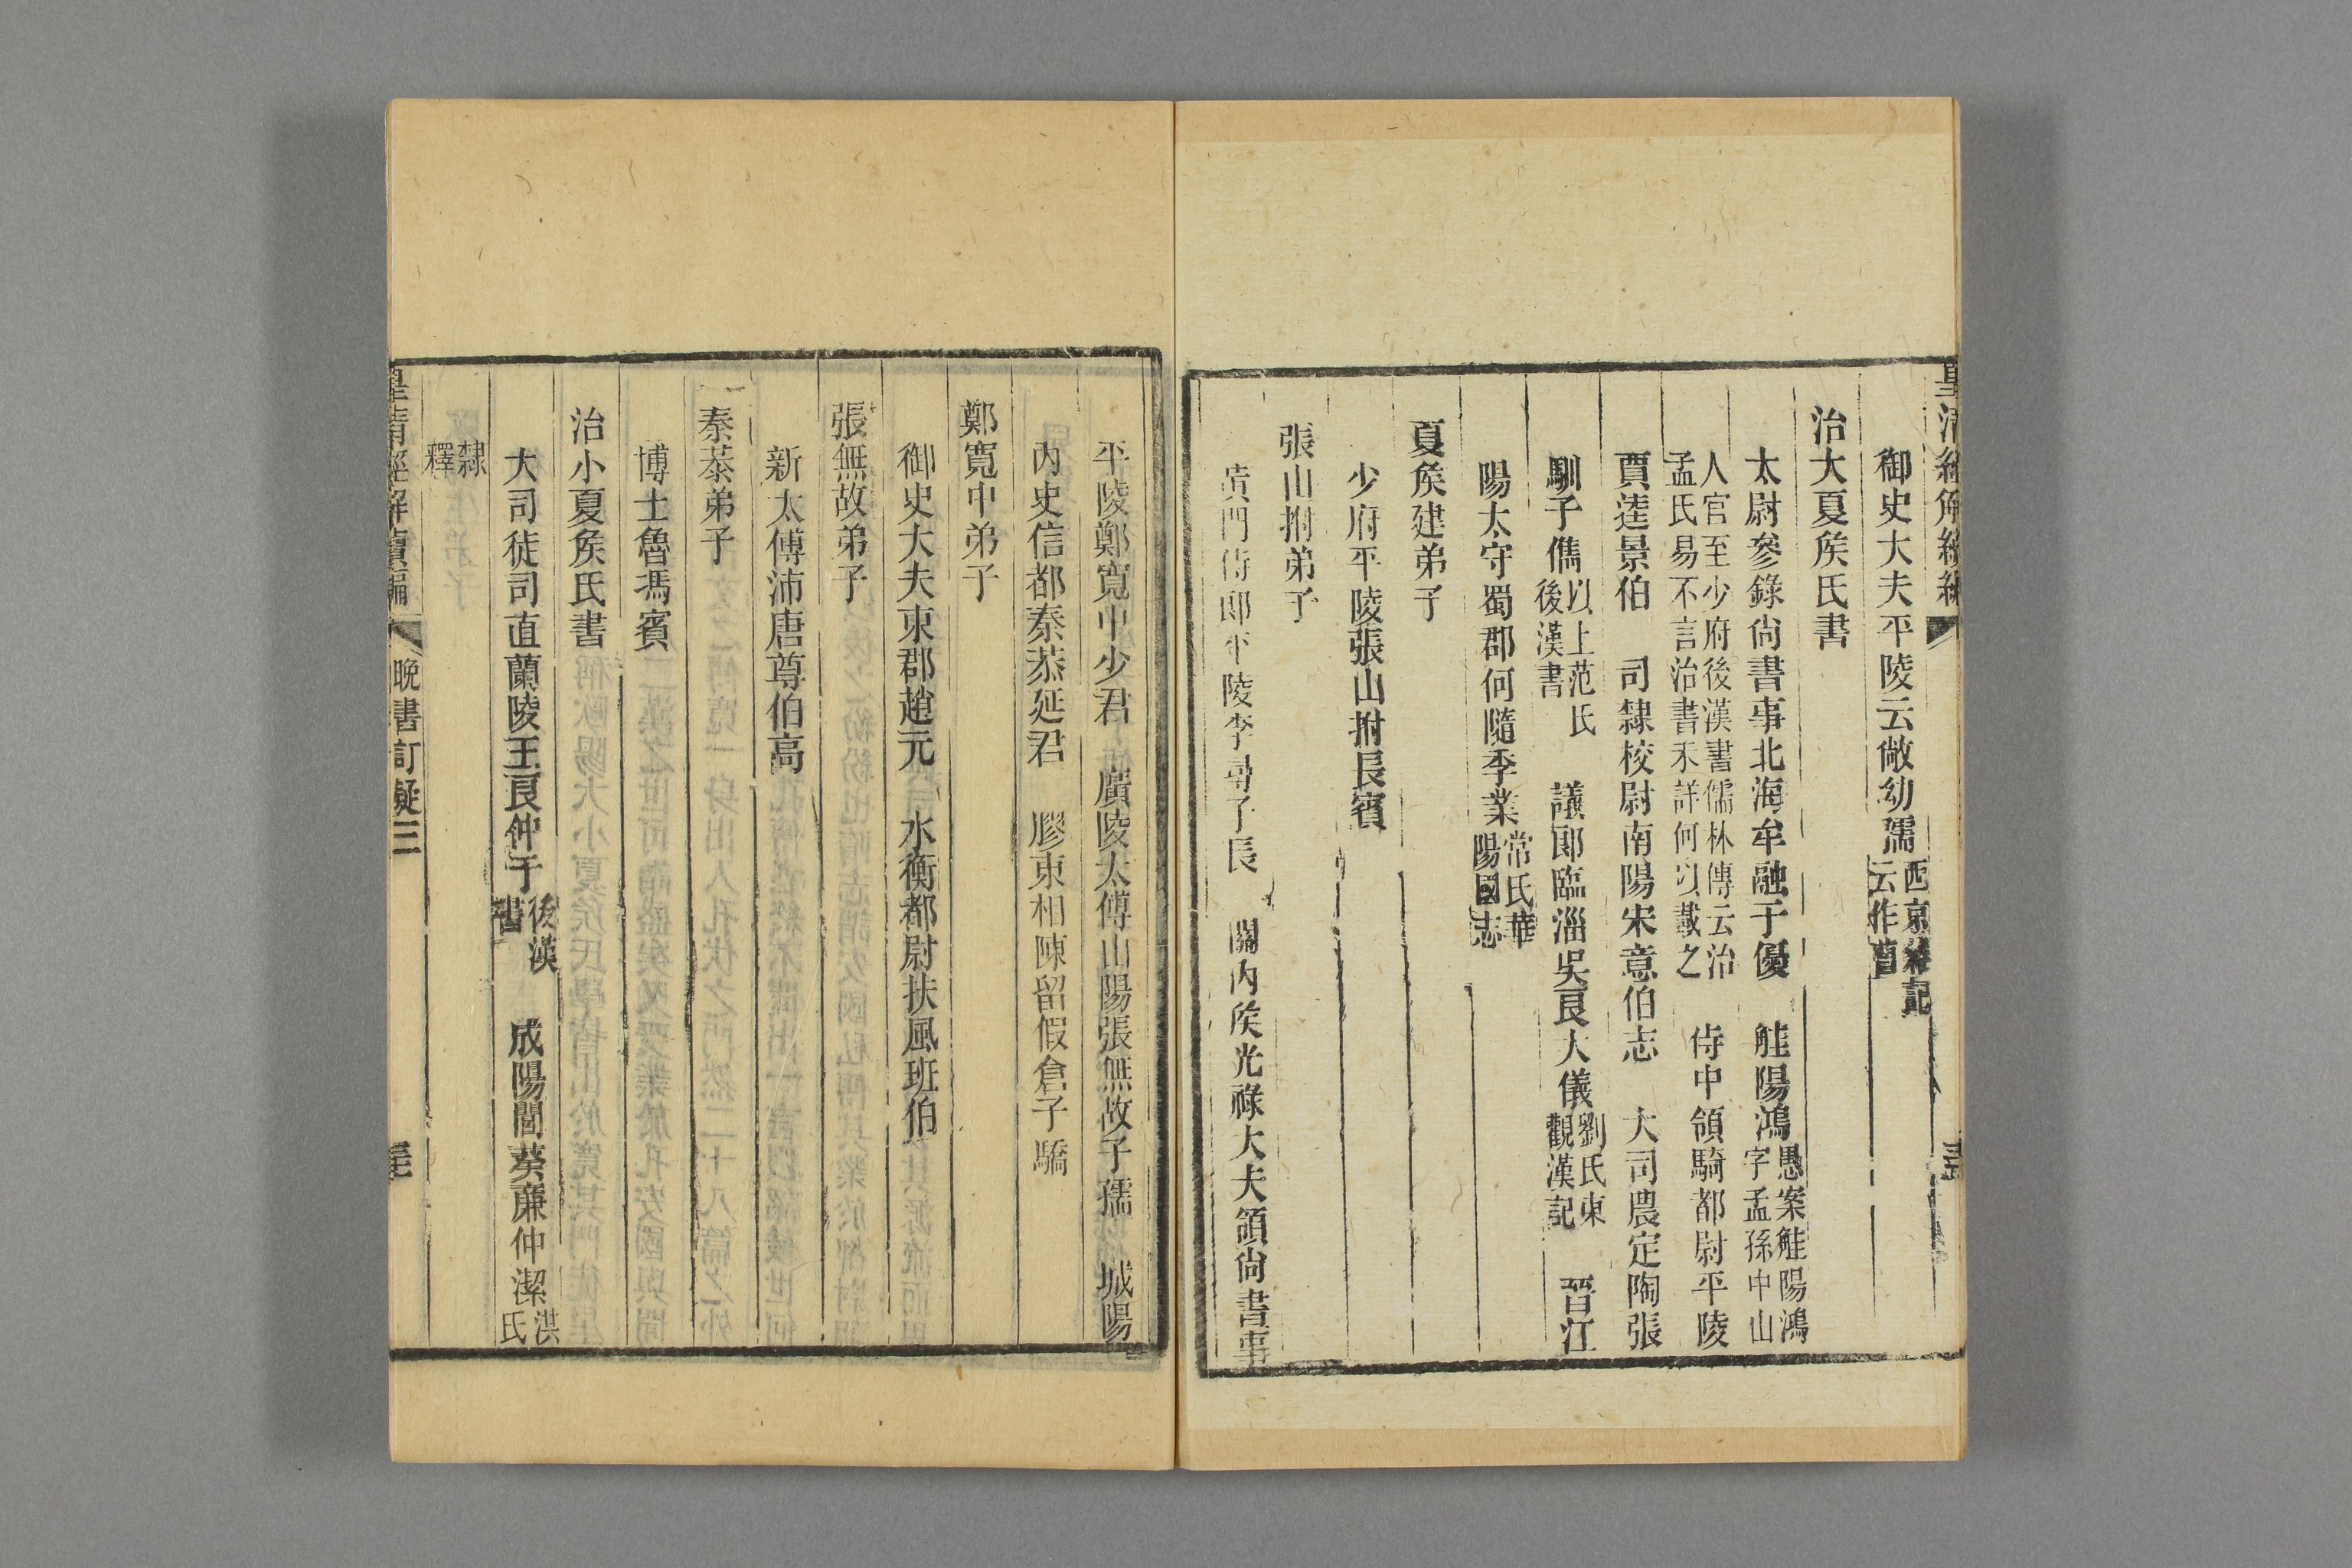 御史大夫平陵云敞幼孺西京雜記云作曹
治大夏矦氏書
太尉參錄尙書事北海牟融子優　觟陽鴻愚案觟陽鴻字孟孫中山
人官至少府後漢書儒林傳云治孟氏易不言治書未詳何以載之　侍中領騎都尉平陵
賈逵景伯　司隸校尉南陽宋意伯志　大司農定陶張
馴子儁以上范氏後漢書　議郞臨淄吳良大儀劉氏東觀漢記　晉江
陽太守蜀郡何隨季業常氏華陽國志
夏矦建弟子
少府平陵張山拊長賓
張山拊弟子
黃門侍郞平陵李尋子長　關內矦光祿大夫領尙書事
平陵鄭寬中少君　廣陵太傅山陽張無故子孺　城陽
內史信都秦恭延君　膠東相陳留假倉子驕
鄭寬中弟子
御史大夫東郡趙元　水衡都尉扶風班伯
張無故弟子
新太傅沛唐尊伯高
秦恭弟子
博士魯馮賓
治小夏矦氏書
大司徒司直蘭陵王良仲子後漢書　成陽閭葵廉仲潔洪氏
隸釋
皇淸經解續編　晚書訂疑三